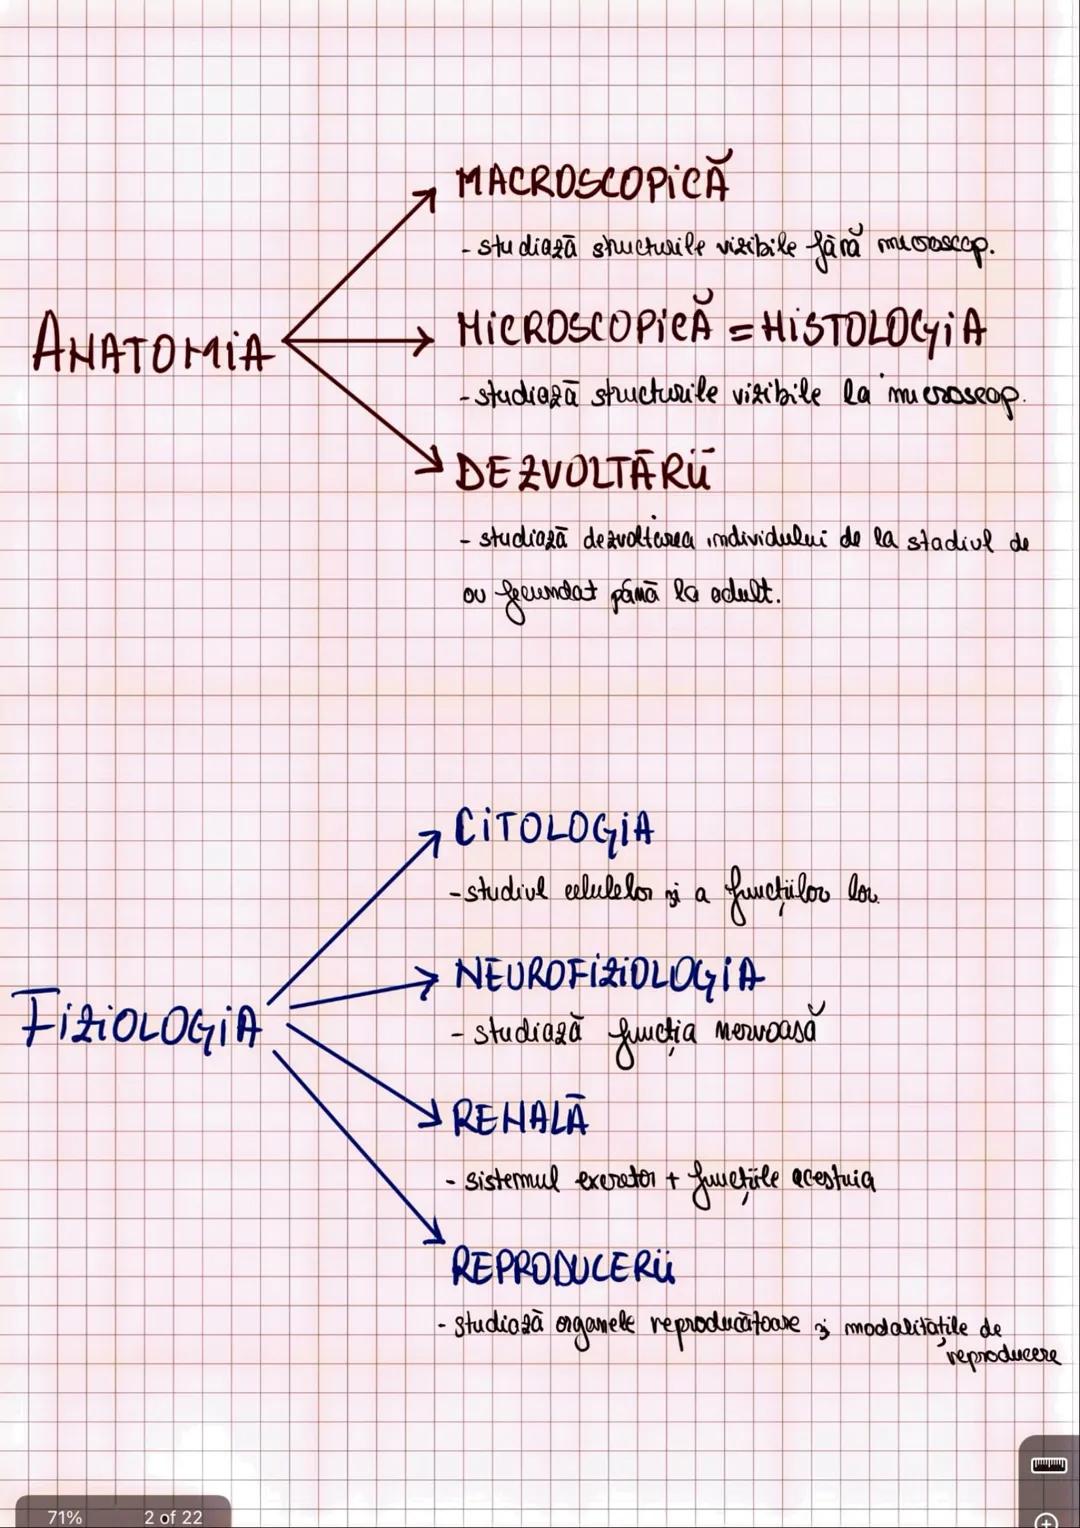 MACROSCOPICĂ
- studiază structurile vizibile fără microscop.
ANATOMIA
MICROSCOPICĂ = HISTOLOGIA
- studiază structurile vizibile la microscop.
DEZVOLTĂRII
- studiază dezvoltarea individului de la stadiul de
ou fecundat până la adult.
CITOLOGIA
- studiul celulelor și a funcțiilor lor.
NEUROFIZIOLOGIA
FIZIOLOGIA
- studiază funcția nervoasă
RENALĂ
- sistemul excretor + funcțiile acestuia
REPRODUCERII
- studiază organele reproducătoare și modalitățile de
reproducere
71% 2 of 22